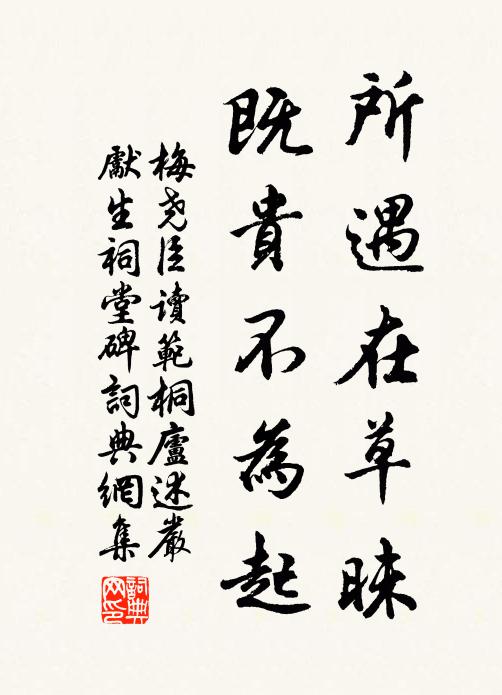 所遇在草昧
既貴不為起
梅堯臣讀範桐廬述嚴
獻生祠堂碑詞典網集
詞典網印